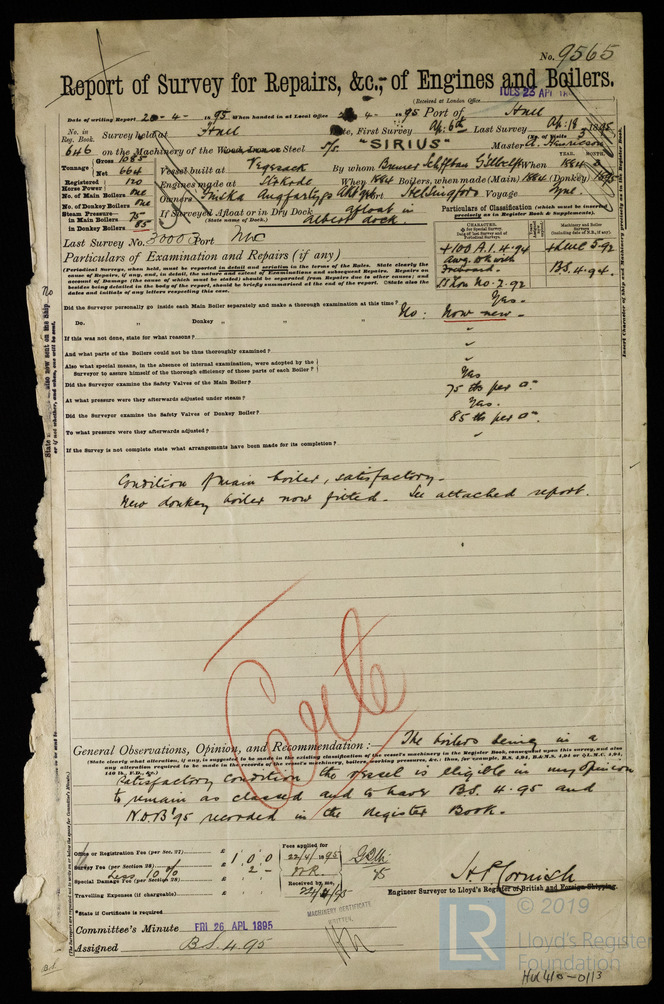 No. 9565
Report of Survey for Repairs, &c., of Engines and Boilers.
(Received at London Office TUES 23 APL
Date of writing Report 20-4- 1895 When handed in at Local Office 4- 1895 Port of Hull
No. in Reg. Book. Survey held at Hull Date, First Survey Ap: 6th Last Survey Ap: 18 1895
(No. of Visits 3)
646 on the Machinery of the Wood, Iron or Steel S/s. "SIRIUS" Master A. Henricson
Tonnage Gross 1085 Net 664 Vessel built at Vegesack By whom Bremer Schiffbau When 1884 YEAR. MONTH. 2
Registered Horse Power 120 Engines made at When 1884 Boilers, when made (Main) 1884 (Donkey) 1895
No. of Main Boilers one Owners Finska Angfartygs Port Helsingfors Voyage Tyne.
No. of Donkey Boilers one
Steam Pressure in Main Boilers 75 If Surveyed Afloat or in Dry Dock afloat in
in Donkey Boilers 85 (State name of Dock.) Albert dock
Particulars of Classification (which must be inserted precisely as in Register Book & Supplements).
Last Survey No. 30005 Port Nwc
CHARACTER. for Special Survey. Date of last Survey and of Periodical Surveys.
Machinery and Boiler Surveys (including date of N.B., if any).
+100.A.1. 4.94 +LMC 5.92
B.S. 4.94.
SS No. 2.92
Particulars of Examination and Repairs (if any)
(Periodical Surveys, when held, must be reported in detail and seriatim in the terms of the Rules. State clearly the
cause of Repairs, if any, and, in detail, the nature and extent of Examinations and subsequent Repairs. Repairs on
account of Damage (the cause of which must be stated) should be separated from Repairs due to other causes; and
besides being detailed in the body of the report, should be briefly summarised at the end of the report. State also the
dates and initials of any letters respecting this case.
Did the Surveyor personally go inside each Main Boiler separately and make a thorough examination at this time? Yes.
Do. " Donkey " " " No: Now new.
If this was not done, state for what reasons? "
And what parts of the Boilers could not be thoroughly examined? "
Also what special means, in the absence of internal examination, were adopted by the
Surveyor to assure himself of the thorough efficiency of those parts of each Boiler? "
Did the Surveyor examine the Safety Valves of the Main Boiler? Yes
At what pressure were they afterwards adjusted under steam? 75 lbs per □"
Did the Surveyor examine the Safety Valves of Donkey Boiler? Yes.
To what pressure were they afterwards adjusted? 85 lbs per □"
If the Survey is not complete state what arrangements have been made for its completion? "
Condition of main boiler, satisfactory.
New donkey boiler now fitted. See attached report.
General Observations, Opinion, and Recommendation:— The boilers being in a
(State clearly what alteration, if any, is suggested to be made in the existing classification of the vessel's machinery in the Register Book, consequent upon this survey, and also
any alteration required to be made in the records of the vessel's machinery, boilers, working pressure, &c.: thus, for example, B.S. 4,94, B.&M.S. 4,94 or L.M.C. 4,94,
140 lb. F.D., &c.)
satisfactory condition the vessel is eligible in my opinion
to remain as classed and to have B.S. 4.95 and
N.D.B '95 recorded in the Register Book.
Office or Registration Fee (per Sec. 27) £ Fees applied for
Survey Fee (per Section 28) £ 1 0 0 22/4/1895
Less 10% 2 -
Special Damage Fee (per Section 28) £ Received by me,
Travelling Expenses (if chargeable) £
H P Cornish
Engineer Surveyor to Lloyd's Register of British and Foreign Shipping.
*State if Certificate is required
MACHINERY CERTIFICATE WRITTEN.
Committee's Minute FRI 26 APL 1895
Assigned B.S. 4.95
LR © 2019
Lloyd's Register
Foundation
HUL410-0113
B.S.